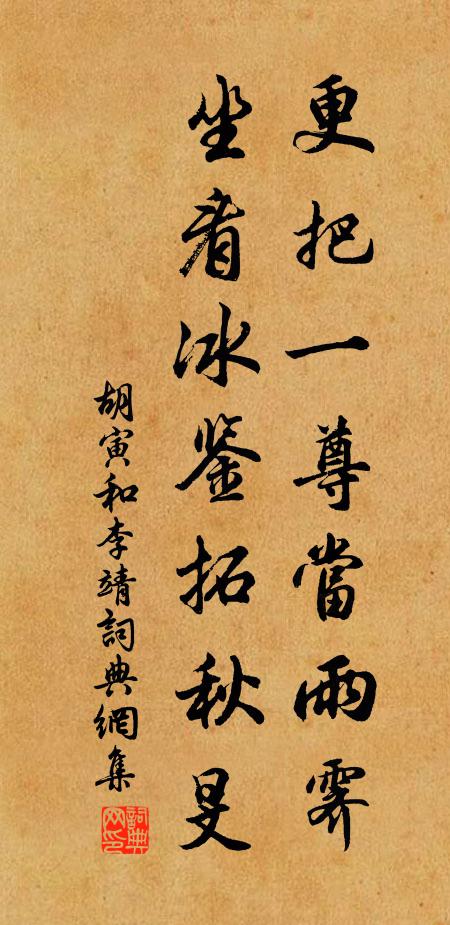 更把一尊當雨霽
坐看冰鉴拓秋旻
胡寅和李靖詞典網集
詞典網印